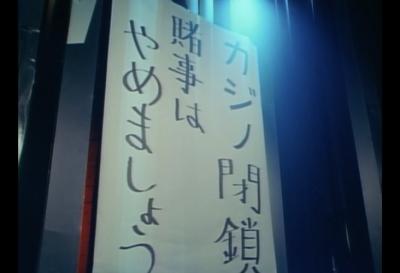 カジノ閉鎖
賭事は
やめましょう